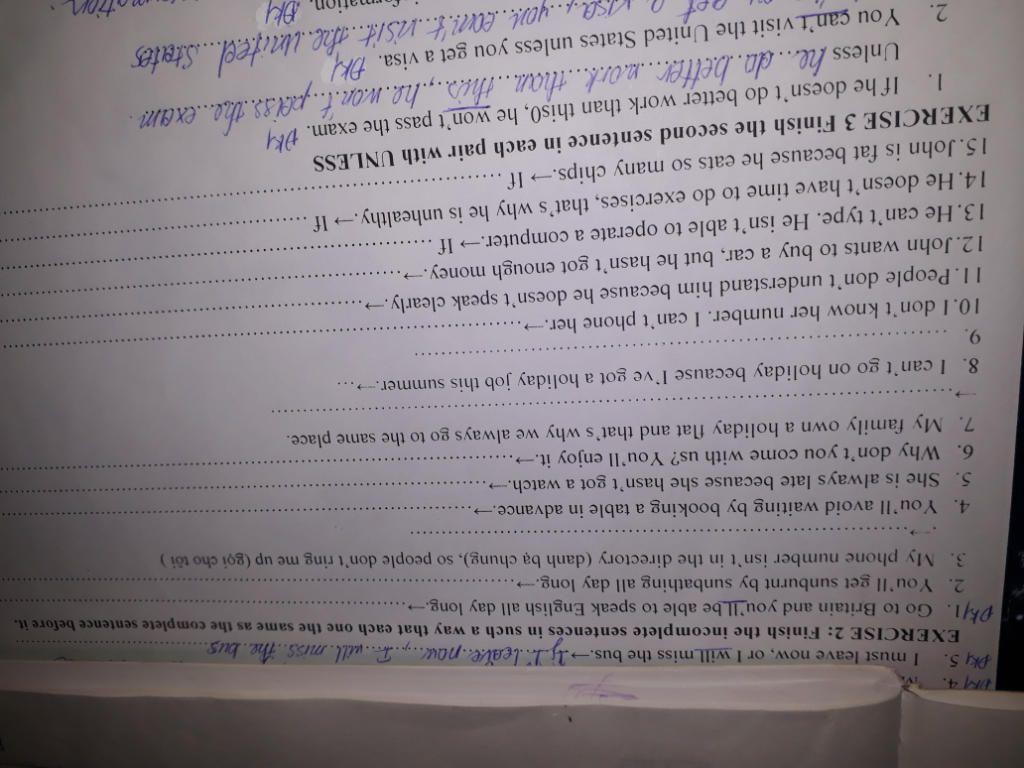 ĐK1 4.
ĐK1 5. I must leave now, or I will miss the bus.→ If I leave now, I will miss the bus
EXERCISE 2: Finish the incomplete sentences in such a way that each one the same as the complete sentence before it.
ĐK1 1. Go to Britain and you'll be able to speak English all day long.→..........
2. You'll get sunburnt by sunbathing all day long.→..........
3. My phone number isn't in the directory (danh bạ chung), so people don't ring me up (gọi cho tôi )
.→..........
4. You'll avoid waiting by booking a table in advance.→..........
5. She is always late because she hasn't got a watch.→..........
6. Why don't you come with us? You'll enjoy it.→..........
7. My family own a holiday flat and that's why we always go to the same place.
→..........
8. I can't go on holiday because I've got a holiday job this summer.→...
9. ..........
10. I don't know her number. I can't phone her.→..........
11. People don't understand him because he doesn't speak clearly.→..........
12. John wants to buy a car, but he hasn't got enough money.→..........
13. He can't type. He isn't able to operate a computer.→ If ..........
14. He doesn't have time to do exercises, that's why he is unhealthy.→ If ..........
15. John is fat because he eats so many chips.→ If ..........
EXERCISE 3 Finish the second sentence in each pair with UNLESS
1. If he doesn't do better work than this0, he won't pass the exam. ĐK1
Unless he do better work than this, he won't pass the exam.
2. You can't visit the United States unless you get a visa. ĐK1
get a visa, you can't visit the United States
ĐK1